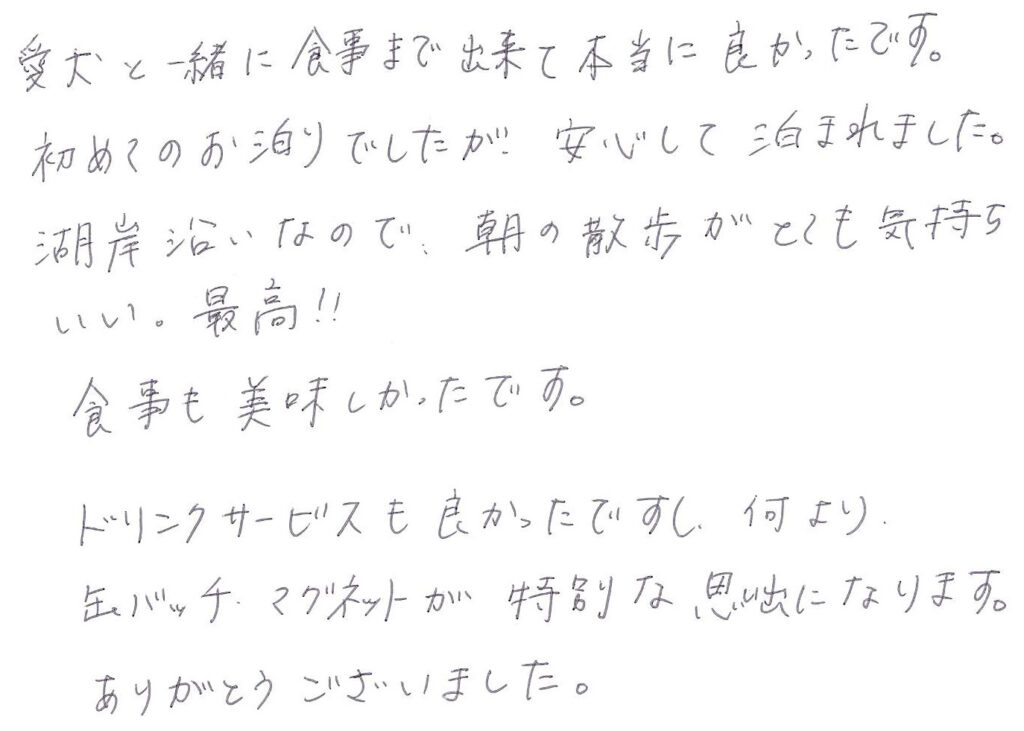 愛犬と一緒に食事まで出来て本当に良かったです。
初めてのお泊りでしたが、安心して泊まれました。
湖岸沿いなので、朝の散歩がとても気持ち
いい。最高!!
食事も美味しかったです。
ドリンクサービスも良かったですし、何より、
缶バッチ、マグネットが特別な思い出になります。
ありがとうございました。